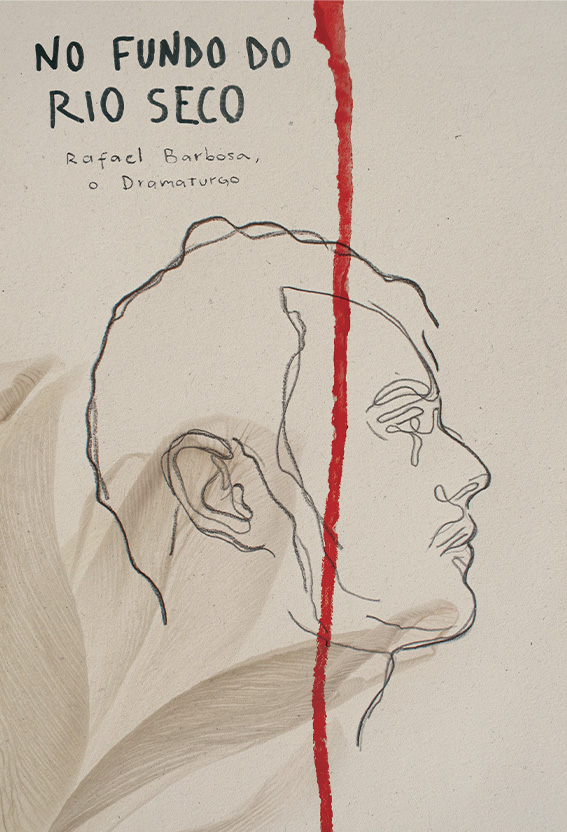 NO FUNDO DO
RIO SECO
Rafael Barbosa,
o Dramaturgo